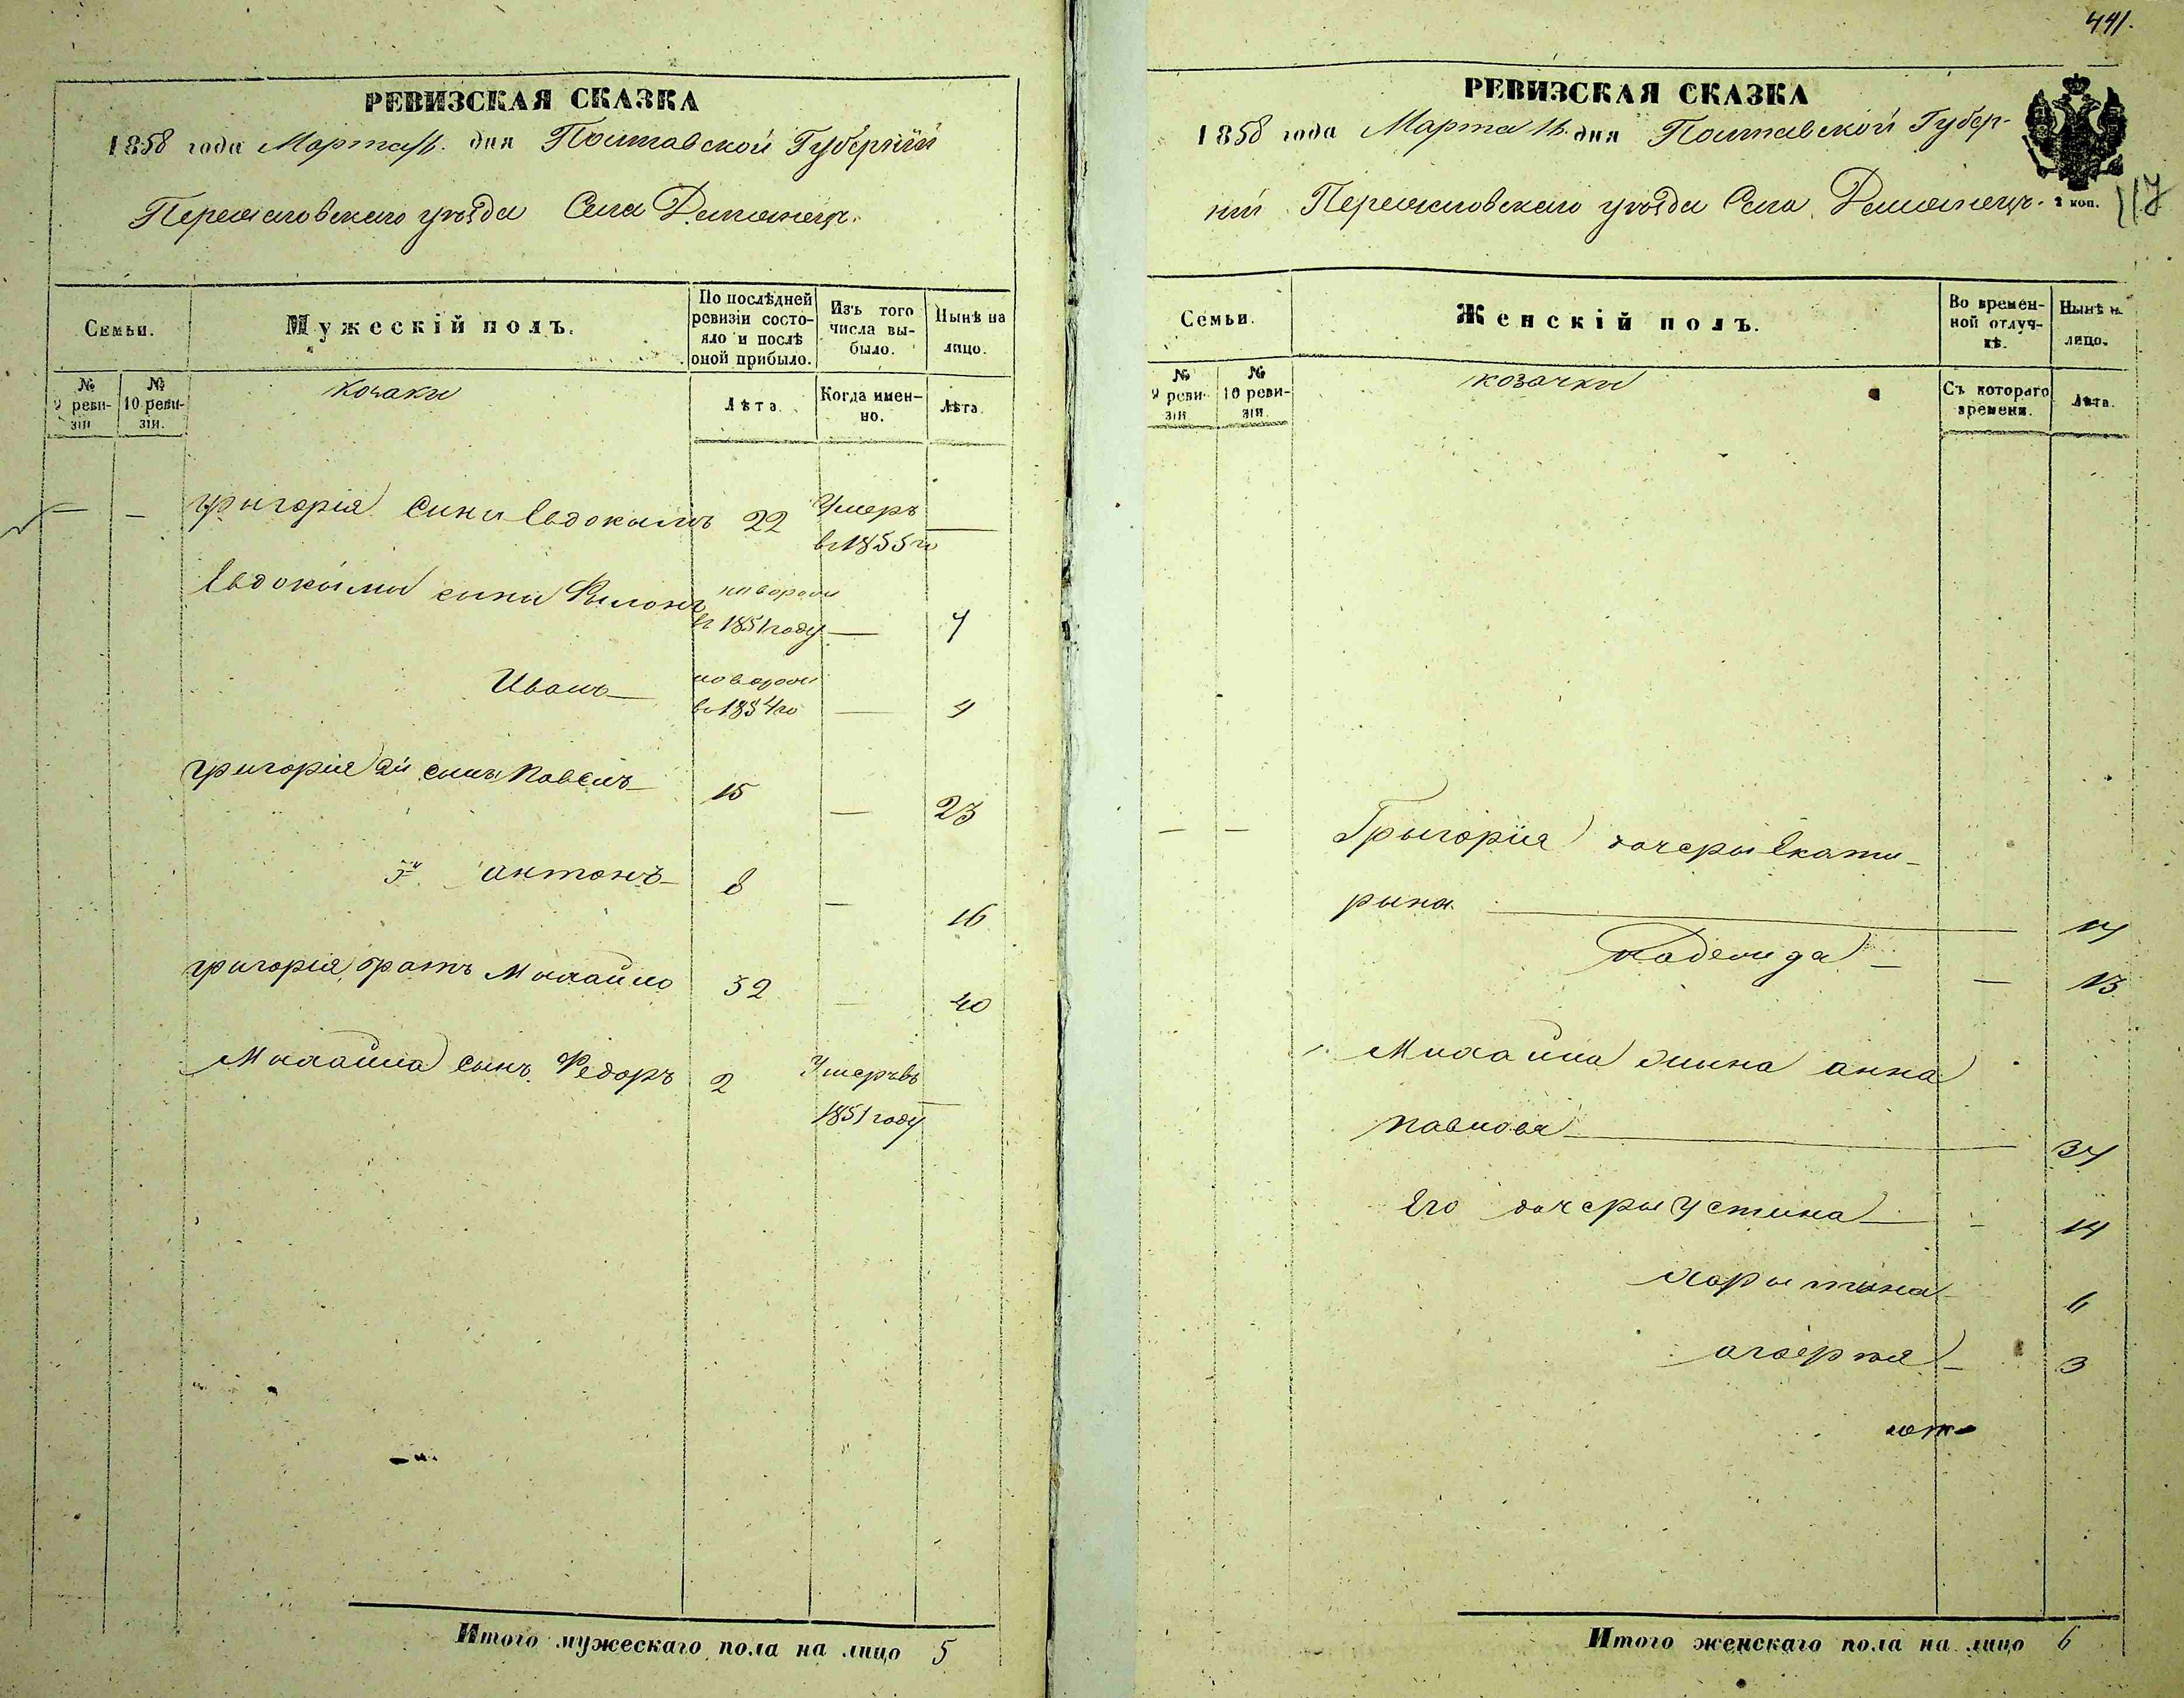 441.
РЕВИЗСКАЯ СКАЗКА
1858 года Марта 16. дня Полтавской Губернии
Переяславскаго уѣзда Села
Семьи.
Мужескій полъ.
По послѣдней ревизіи состояло и послѣ оной прибыло.
Изъ того числа выбыло.
Нынѣ на лицо.
№ 9 ревизіи
№ 10 ревизіи.
козаки
Лѣта.
Когда именно.
Лѣта.
— — Григорія сыны Евдокимъ 22 Умеръ —
въ 1855 го
Евдокима сыны Филонъ новорож
въ 1851 году — 7
Иванъ новорож
въ 1854 го — 4
Григорія 2й сынъ Павелъ 15 — 23
3й Антонъ 8 — 16
Григорія братъ Михайло 32 — 40
Михайла сынъ Федоръ 2 Умеръ въ —
1851 году
Итого мужескаго пола на лицо 5
РЕВИЗСКАЯ СКАЗКА
1858 года Марта 16. дня Полтавской Губер-
ніи Переяславскаго уѣзда Села
2 коп.
117
Семьи.
Женскій полъ.
Во временной отлучкѣ.
Нынѣ н лицо.
№ 9 ревизіи
№ 10 ревизіи.
козачки
Съ котораго времени.
Лѣта.
— — Грыгорія дочеры Екате-
рына — 17
Надежда — — 13
Михайла жына анна
павлова — 37
Его дочеры Устина — - 14
харытына 6
агафія — 3
Итого женскаго пола на лицо 6